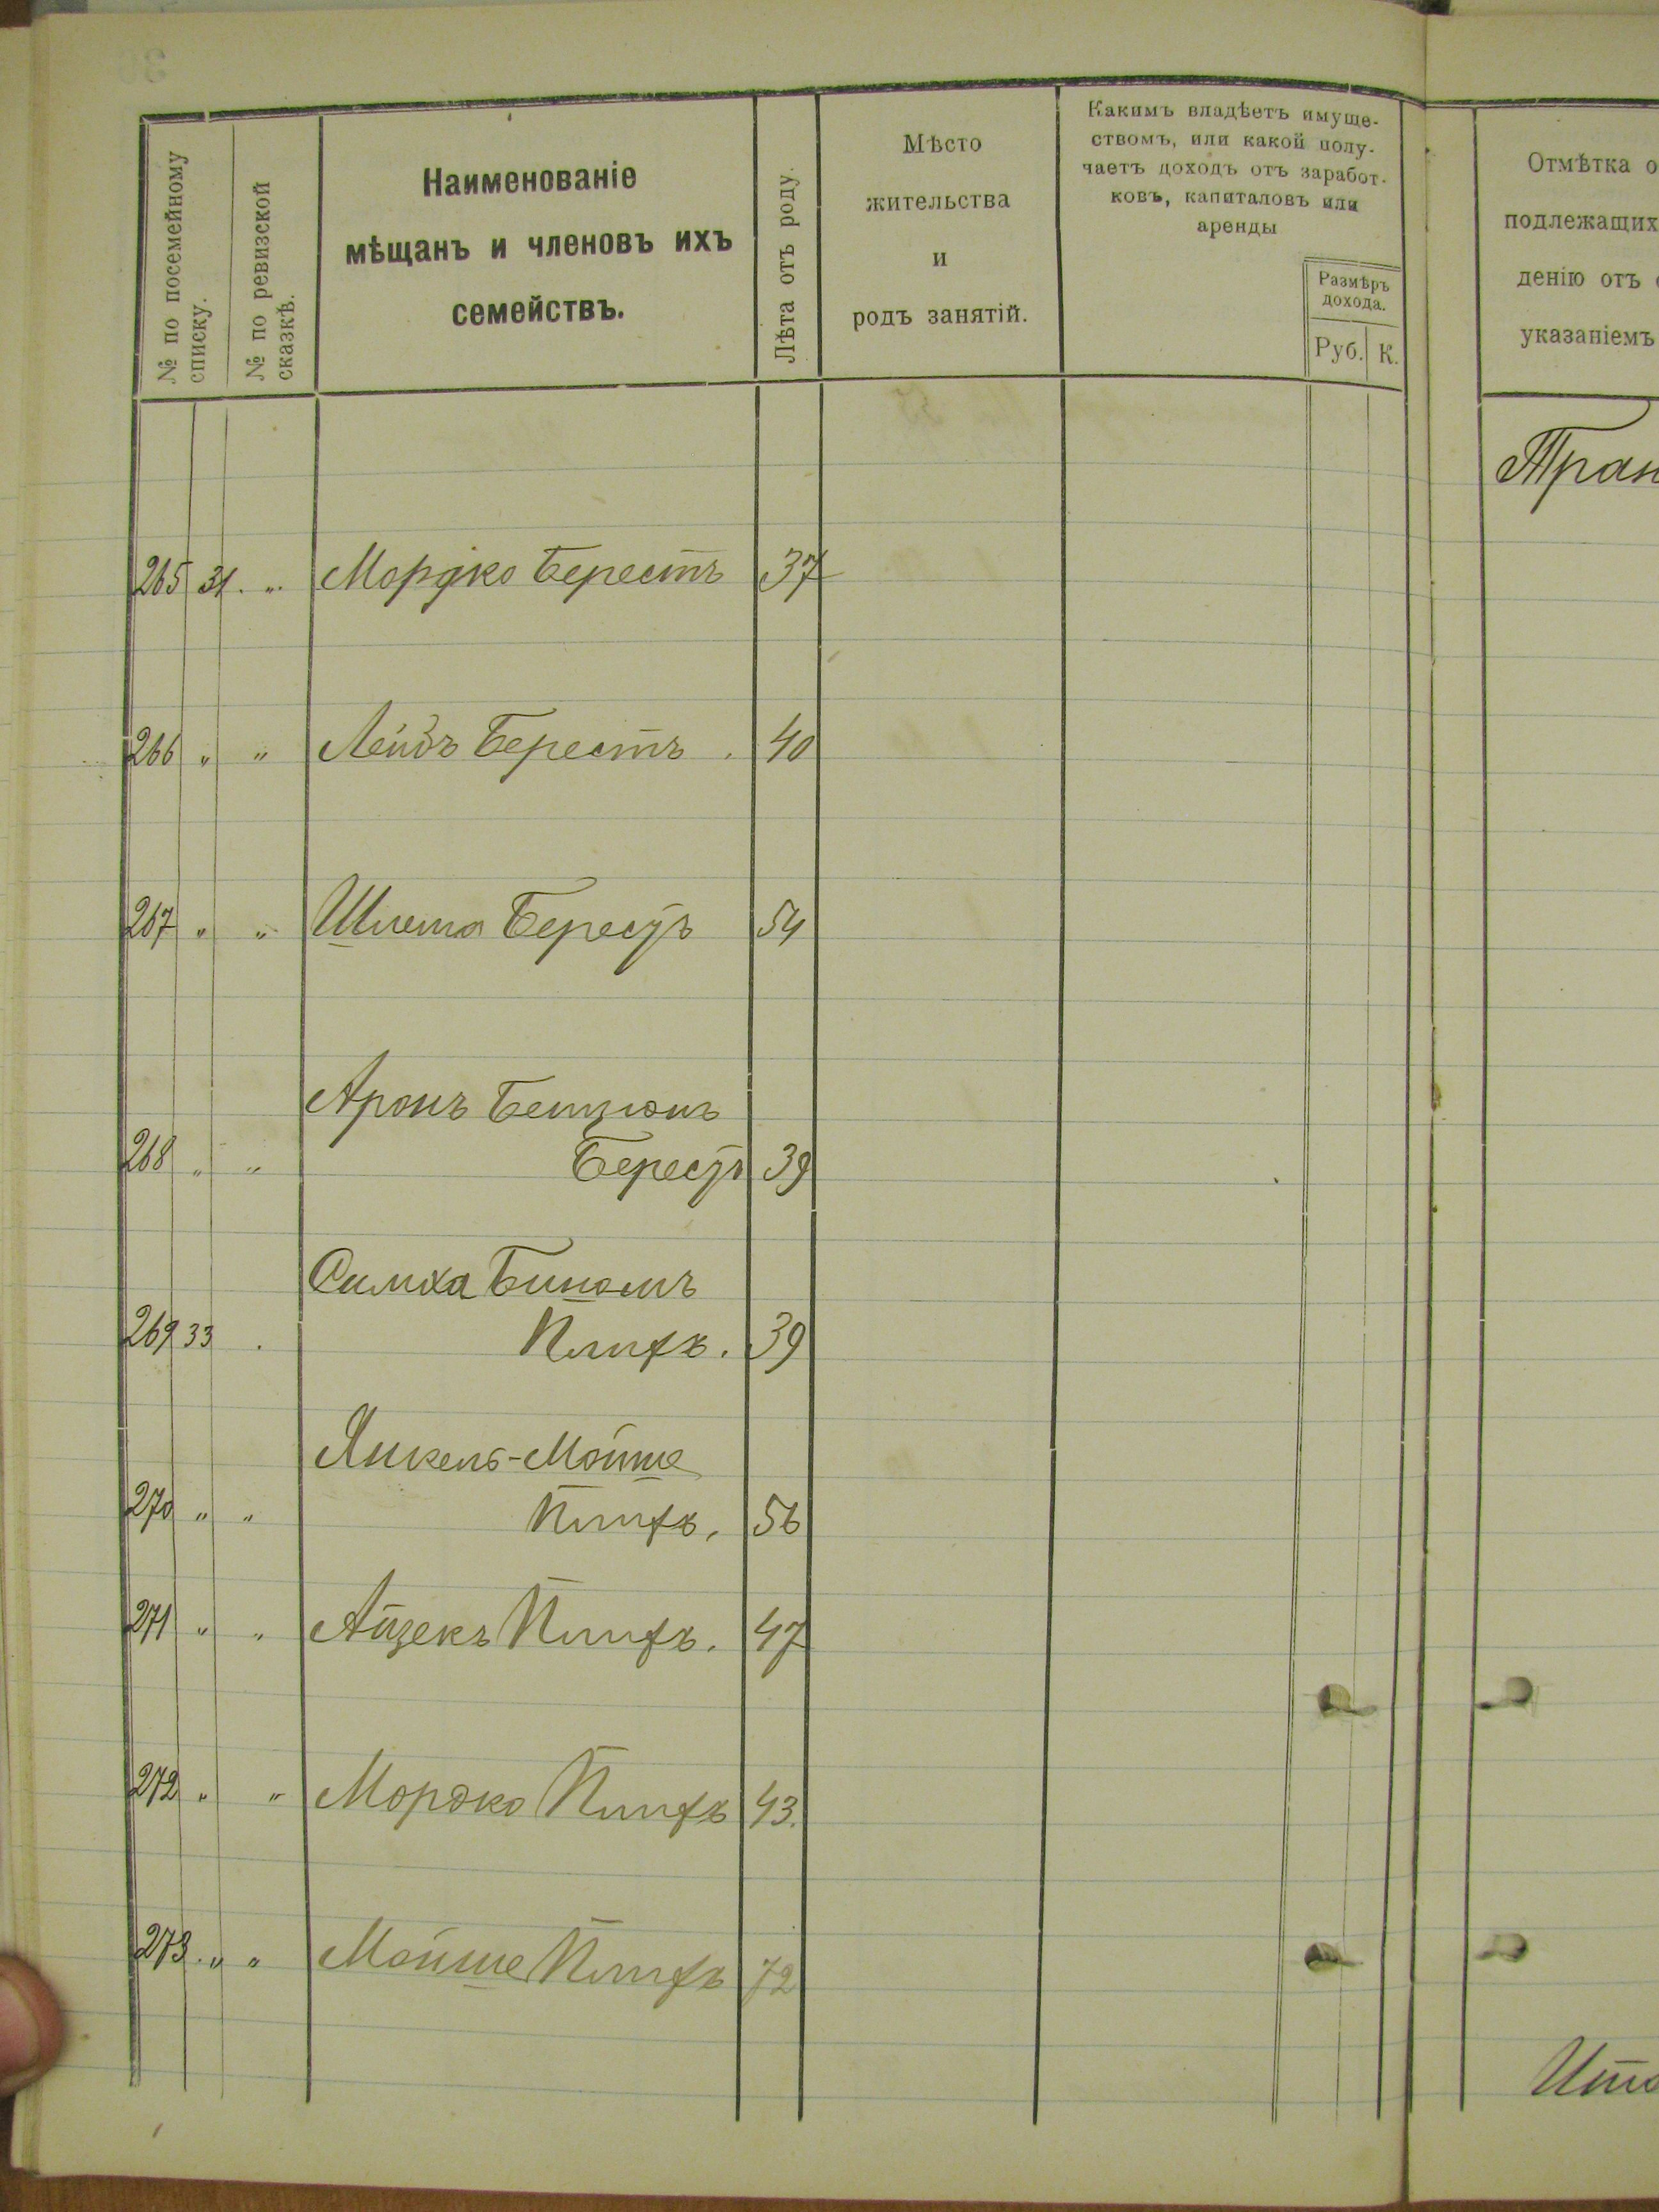 № по посемейному
списку.
№ по ревизской
сказкѣ.
Наименованіе
мѣщанъ и членовъ ихъ
семействъ.
Лѣта отъ роду.
Мѣсто
жительства
и
родъ занятій.
Какимъ владѣетъ имуще-
ствомъ, или какой полу-
чаетъ доходъ отъ заработ-
ковъ, капиталовъ или
аренды
Размѣръ
дохода.
Руб. К.
Отмѣтка о
подлежащих
денію отъ
указаніемъ
Тран
265 31 . „ Мордко Берестъ 37
266 „ „ Лейбъ Берестъ . 40
267 „ „ Шлема Берестъ 54
Аронъ Бенціонъ
268 „ „ Берестъ 39
Симха Биномъ
269 33 . 39
Янкель-Мойше
270 „ „ 56
271 „ „ Айзекъ 47
272 „ „ Мордко 43.
273 . „ „ Мойше 72
Ито